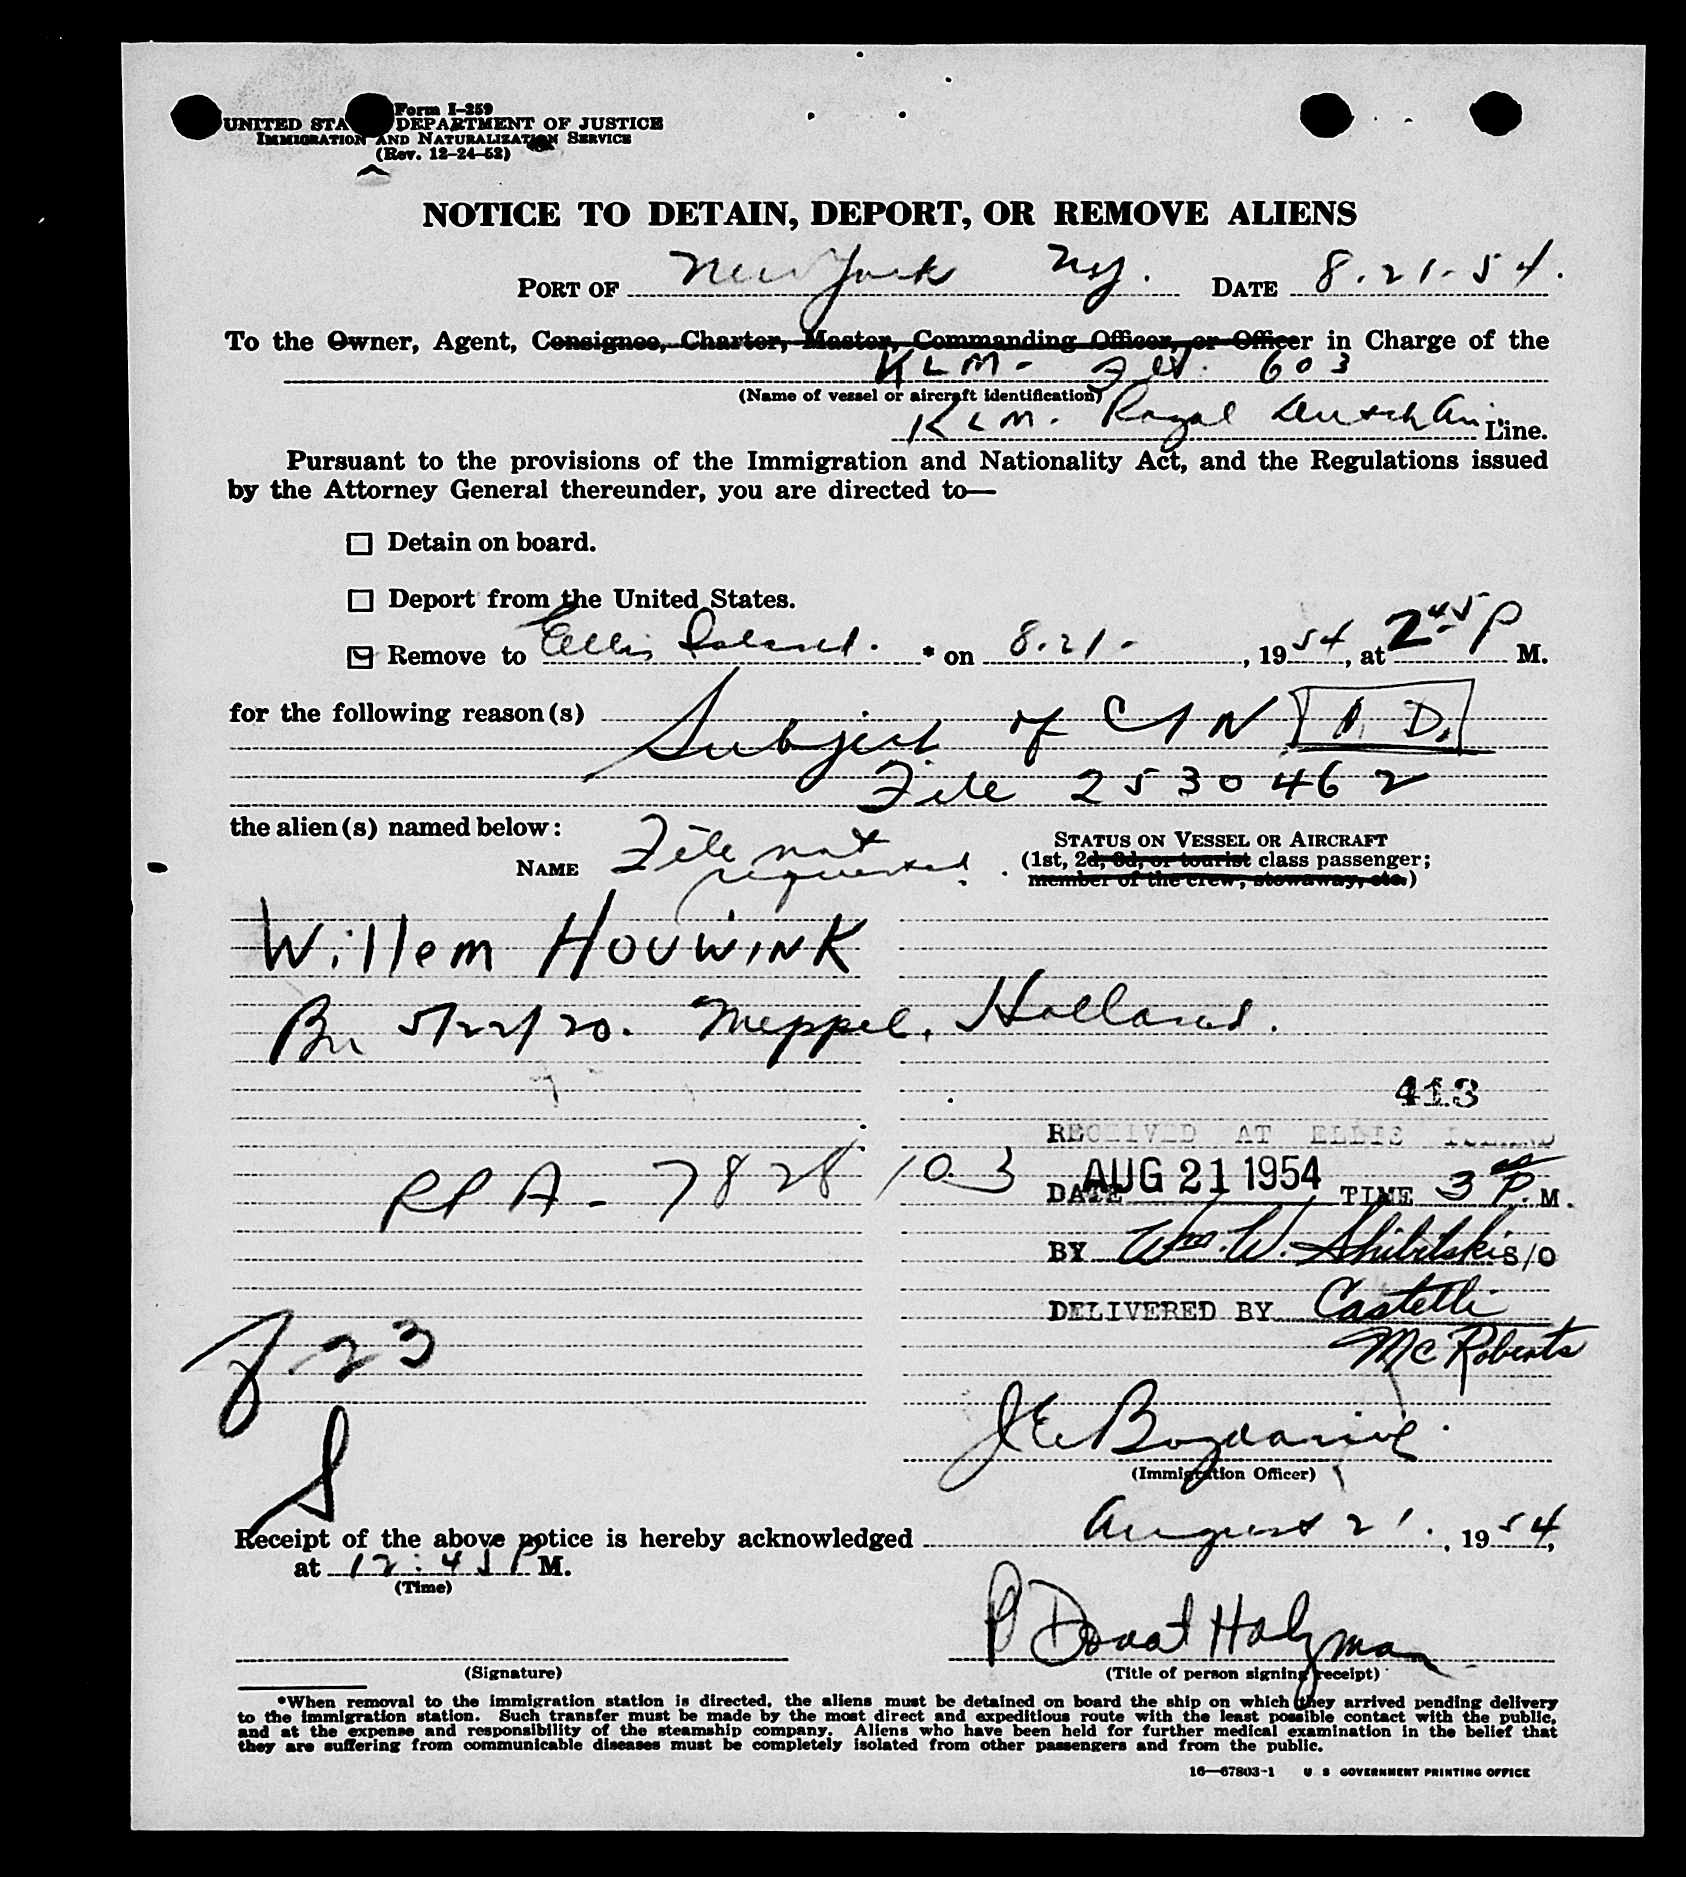 Form I-259
UNITED STA DEPARTMENT OF JUSTICE
IMMIGRATION AND NATURALIZATION SERVICE
(Rev. 12-24-52)
NOTICE TO DETAIN, DEPORT, OR REMOVE ALIENS
PORT OF New York NY. DATE 8.21-54.
To the Owner, Agent, Consignee, Charter, Master, Commanding Officer, or Officer in Charge of the
KLM - Flt. 603
(Name of vessel or aircraft identification)
KLM. Royal Dutch Air Line.
Pursuant to the provisions of the Immigration and Nationality Act, and the Regulations issued
by the Attorney General thereunder, you are directed to—
Detain on board.
Deport from the United States.
Remove to Ellis Island. * on 8.21-, 1954, at 2 45 P M.
for the following reason(s) Subject of CIN
File 2530462
the alien(s) named below:
NAME File not requested.
STATUS ON VESSEL OR AIRCRAFT
(1st, 2d, 3d, or tourist class passenger;
member of the crew, stowaway, etc.)
Willem HOUWINK
Bn 5/22/20. Meppel, Holland.
413
RECEIVED AT ELLIS ISLAND
PPA - 7828103
DATE AUG 21 1954 TIME 3 P.M.
BY Wm. W. Shibilski S/O
DELIVERED BY Castelli
McRoberts
23
J E Bogdanive
(Immigration Officer)
Receipt of the above notice is hereby acknowledged August 21, 1954,
at 12:45 P M.
(Time)
P Donat Holzman
(Signature)
(Title of person signing receipt)
*When removal to the immigration station is directed, the aliens must be detained on board the ship on which they arrived pending delivery
to the immigration station. Such transfer must be made by the most direct and expeditious route with the least possible contact with the public,
and at the expense and responsibility of the steamship company. Aliens who have been held for further medical examination in the belief that
they are suffering from communicable diseases must be completely isolated from other passengers and from the public.
16—67803-1 U S GOVERNMENT PRINTING OFFICE